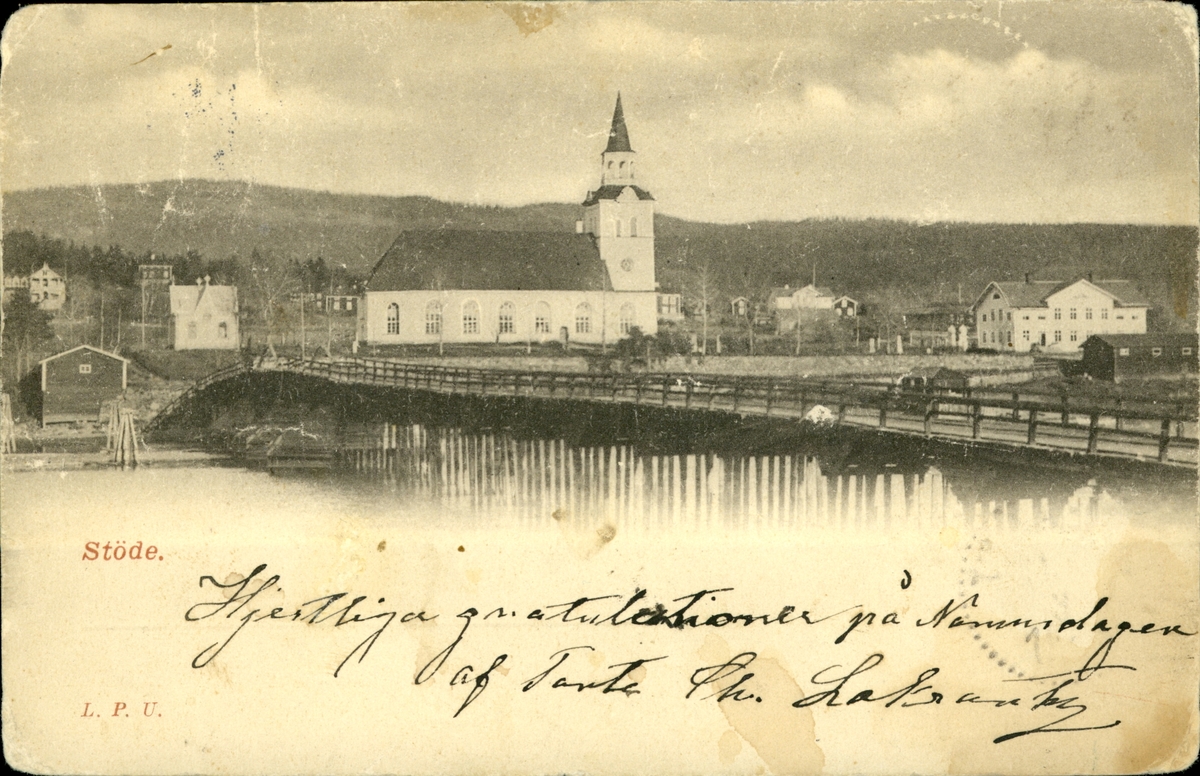 Stöde.
Hjertliga gratulationer på Namnsdagen
af Tante Ch. Lakrantz
L. P. U.